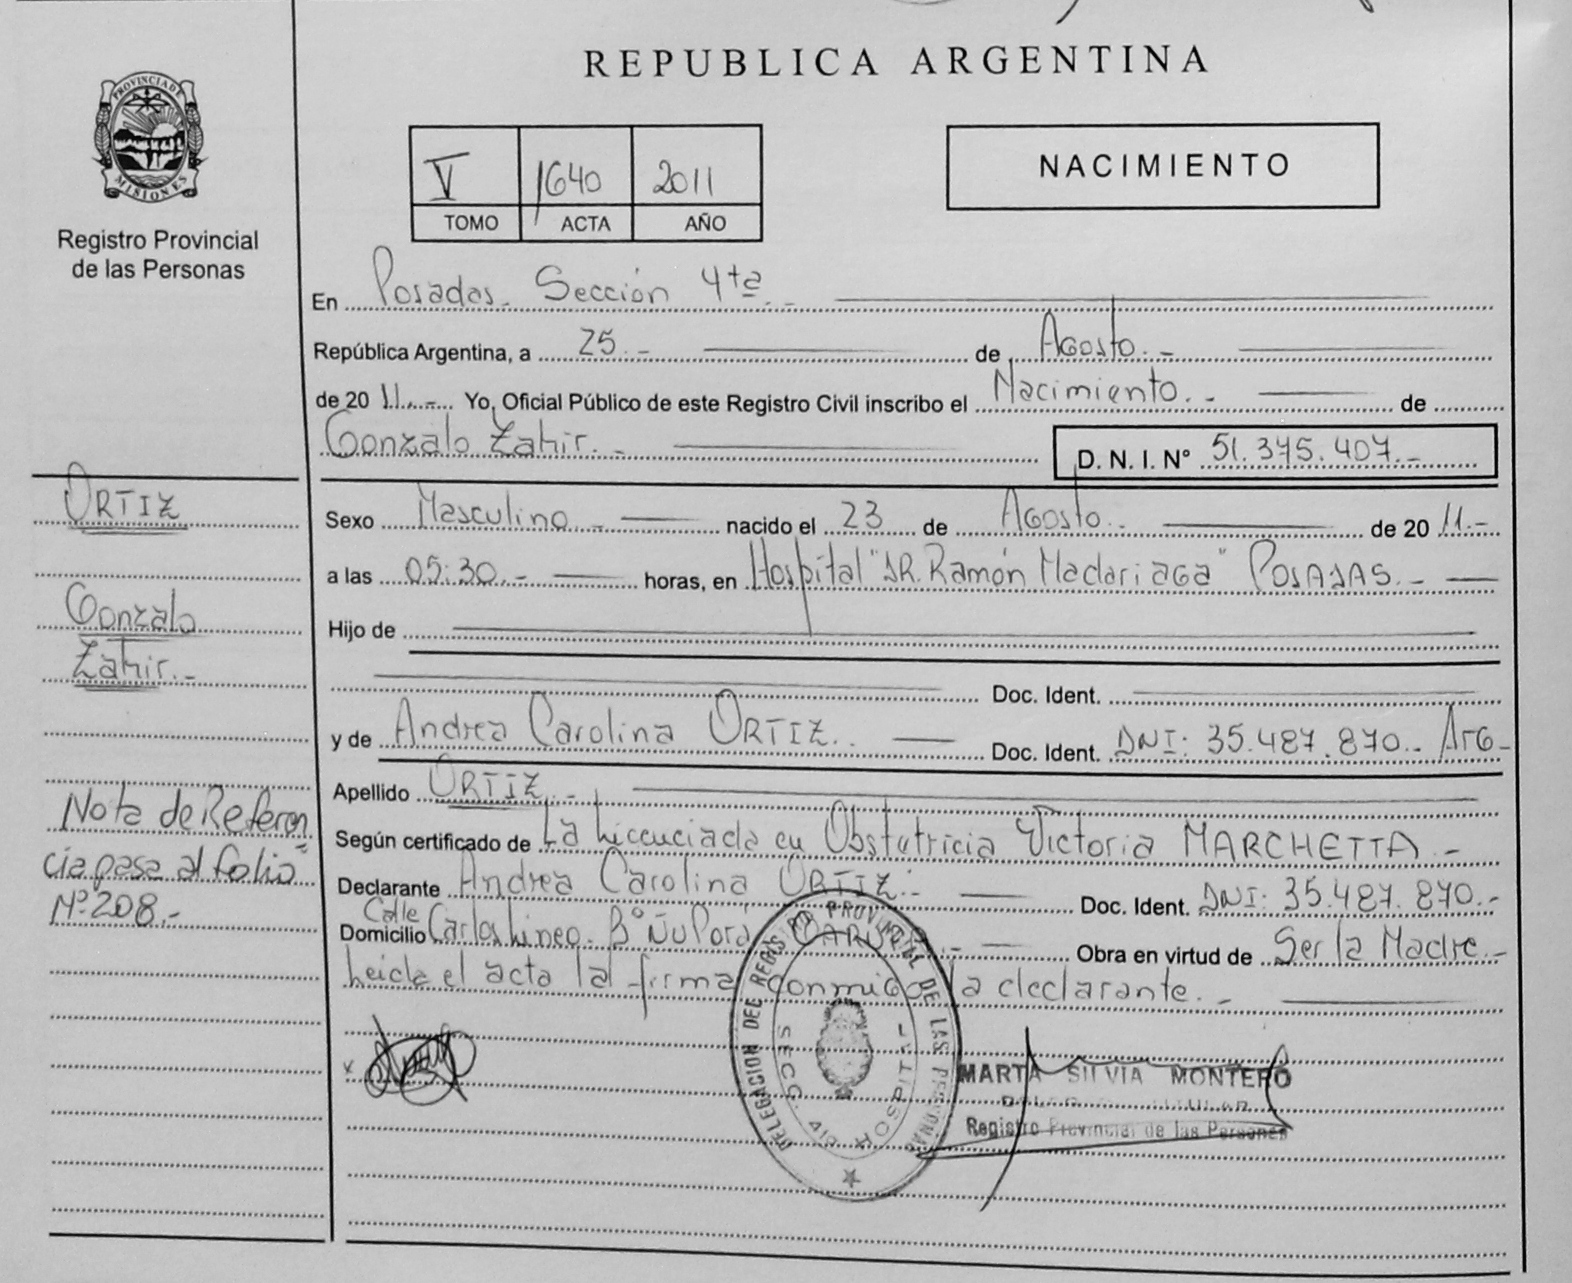 REPUBLICA ARGENTINA
PROVINCIA DE
MISIONES
Registro Provincial
de las Personas
V 1640 2011
TOMO ACTA AÑO
NACIMIENTO
En Posadas.- Sección 4ta.-
República Argentina, a 25.- de Agosto.-
de 20 11.- Yo, Oficial Público de este Registro Civil inscribo el Nacimiento.- de
Gonzalo Zahir.- D. N. I. Nº 51.375.407.-
ORTIZ
Gonzalo
Zahir.-
Nota de Referen
cia pasa al folio
Nº 208.-
Sexo Masculino.- nacido el 23 de Agosto.- de 20 11.-
a las 05:30.- horas, en Hospital "DR. Ramón Madariaga" POSADAS.-
Hijo de
Doc. Ident.
y de Andrea Carolina ORTIZ.- Doc. Ident. DNI: 35.487.870.- Arg.-
Apellido ORTIZ.-
Según certificado de La Licenciada en Obstetricia Victoria MARCHETTA.-
Declarante Andrea Carolina ORTIZ.- Doc. Ident. DNI: 35.487.870.-
Domicilio Calle Carlos Lineo- Bº Ñu Porá Obra en virtud de Ser la Madre.-
Leida el acta la firma conmigo la declarante.-
DELEGACION DEL REGISTRO PROVINCIAL DE LAS PERSONAS
SECC. 4ta HOSPITAL
MARTA SILVIA MONTERO
Registro Provincial de las Personas